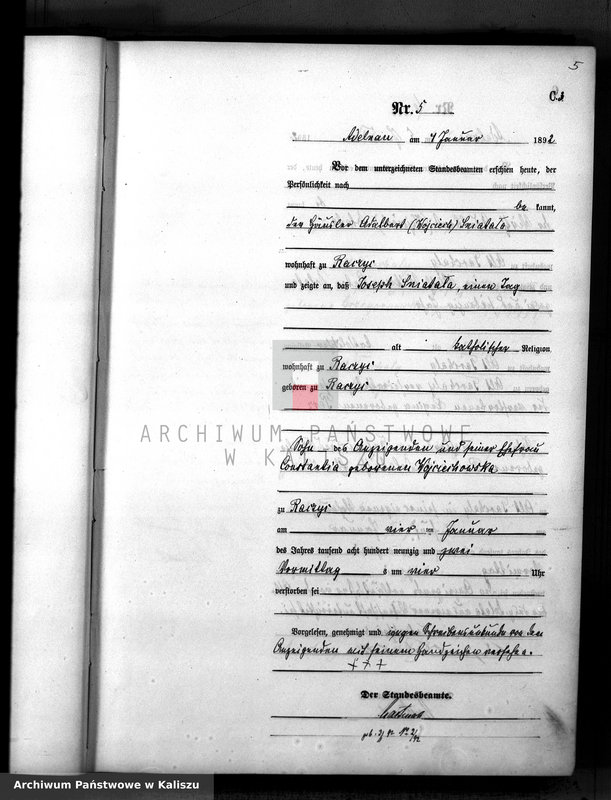 5
C.
Nr. 5
Adelnau am 4 Januar 1892
Vor dem unterzeichneten Standesbeamten erschien heute, der
Persönlichkeit nach
be kannt,
der Häusler Adalbert (Wojciech) Sniatała
wohnhaft zu Raczyc
und zeigte an, daß Joseph Sniatała, einen Tag
alt katholischer Religion
wohnhaft zu Raczyc
geboren zu Raczyc
Sohn des Anzeigenden und seiner Ehefrau
Constantia geborenen Wojciechowska
zu Raczyc
am vier ten Januar
des Jahres tausend acht hundert neunzig und zwei
Vormittag s um vier Uhr
verstorben sei
Vorgelesen, genehmigt und wegen Schreibensunkunde von dem
Anzeigenden mit seinem Handzeichen versehen.
+ + +
Der Standesbeamte.
geb. 3/ 92 Nr 2/92
ARCHIWUM PAŃSTWOWE
W KALISZU
Archiwum Państwowe w Kaliszu